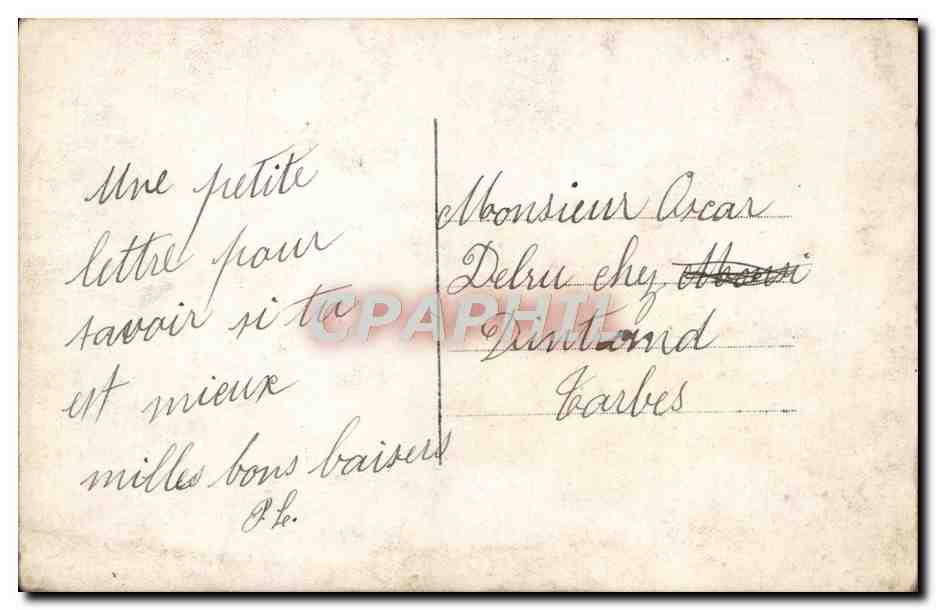 Une petite
lettre pour
savoir si tu
est mieux
milles bons baisers
P. Le.
Monsieur Oscar
Delru chez
Dintrand
Tarbes
CPAPHIL